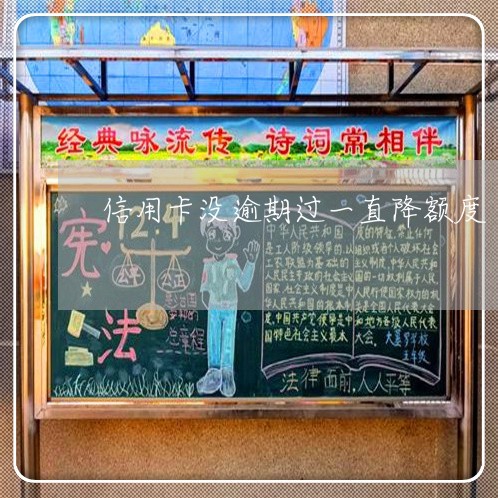 经典咏流传 诗词常相伴
信用卡没逾期过一直降额度
12.4
宪
法
公平
公正
总章程
中华人民共和国
是工人阶级领导的,以
工农联盟为基础的
人民民主专政的社会主义
国家,社会主义制度是中
华人民共和国的根本制
度,中国共产党领导是中
国特色社会主义最本
质的特征,禁止任何
组织或者个人破坏社会
主义制度,中华人民共和
国的一切权利属于人民,
人民行使国家权力的机
关是全国人民代表大会
和地方各级人民代表
大会。
五年级
法律面前,人人平等